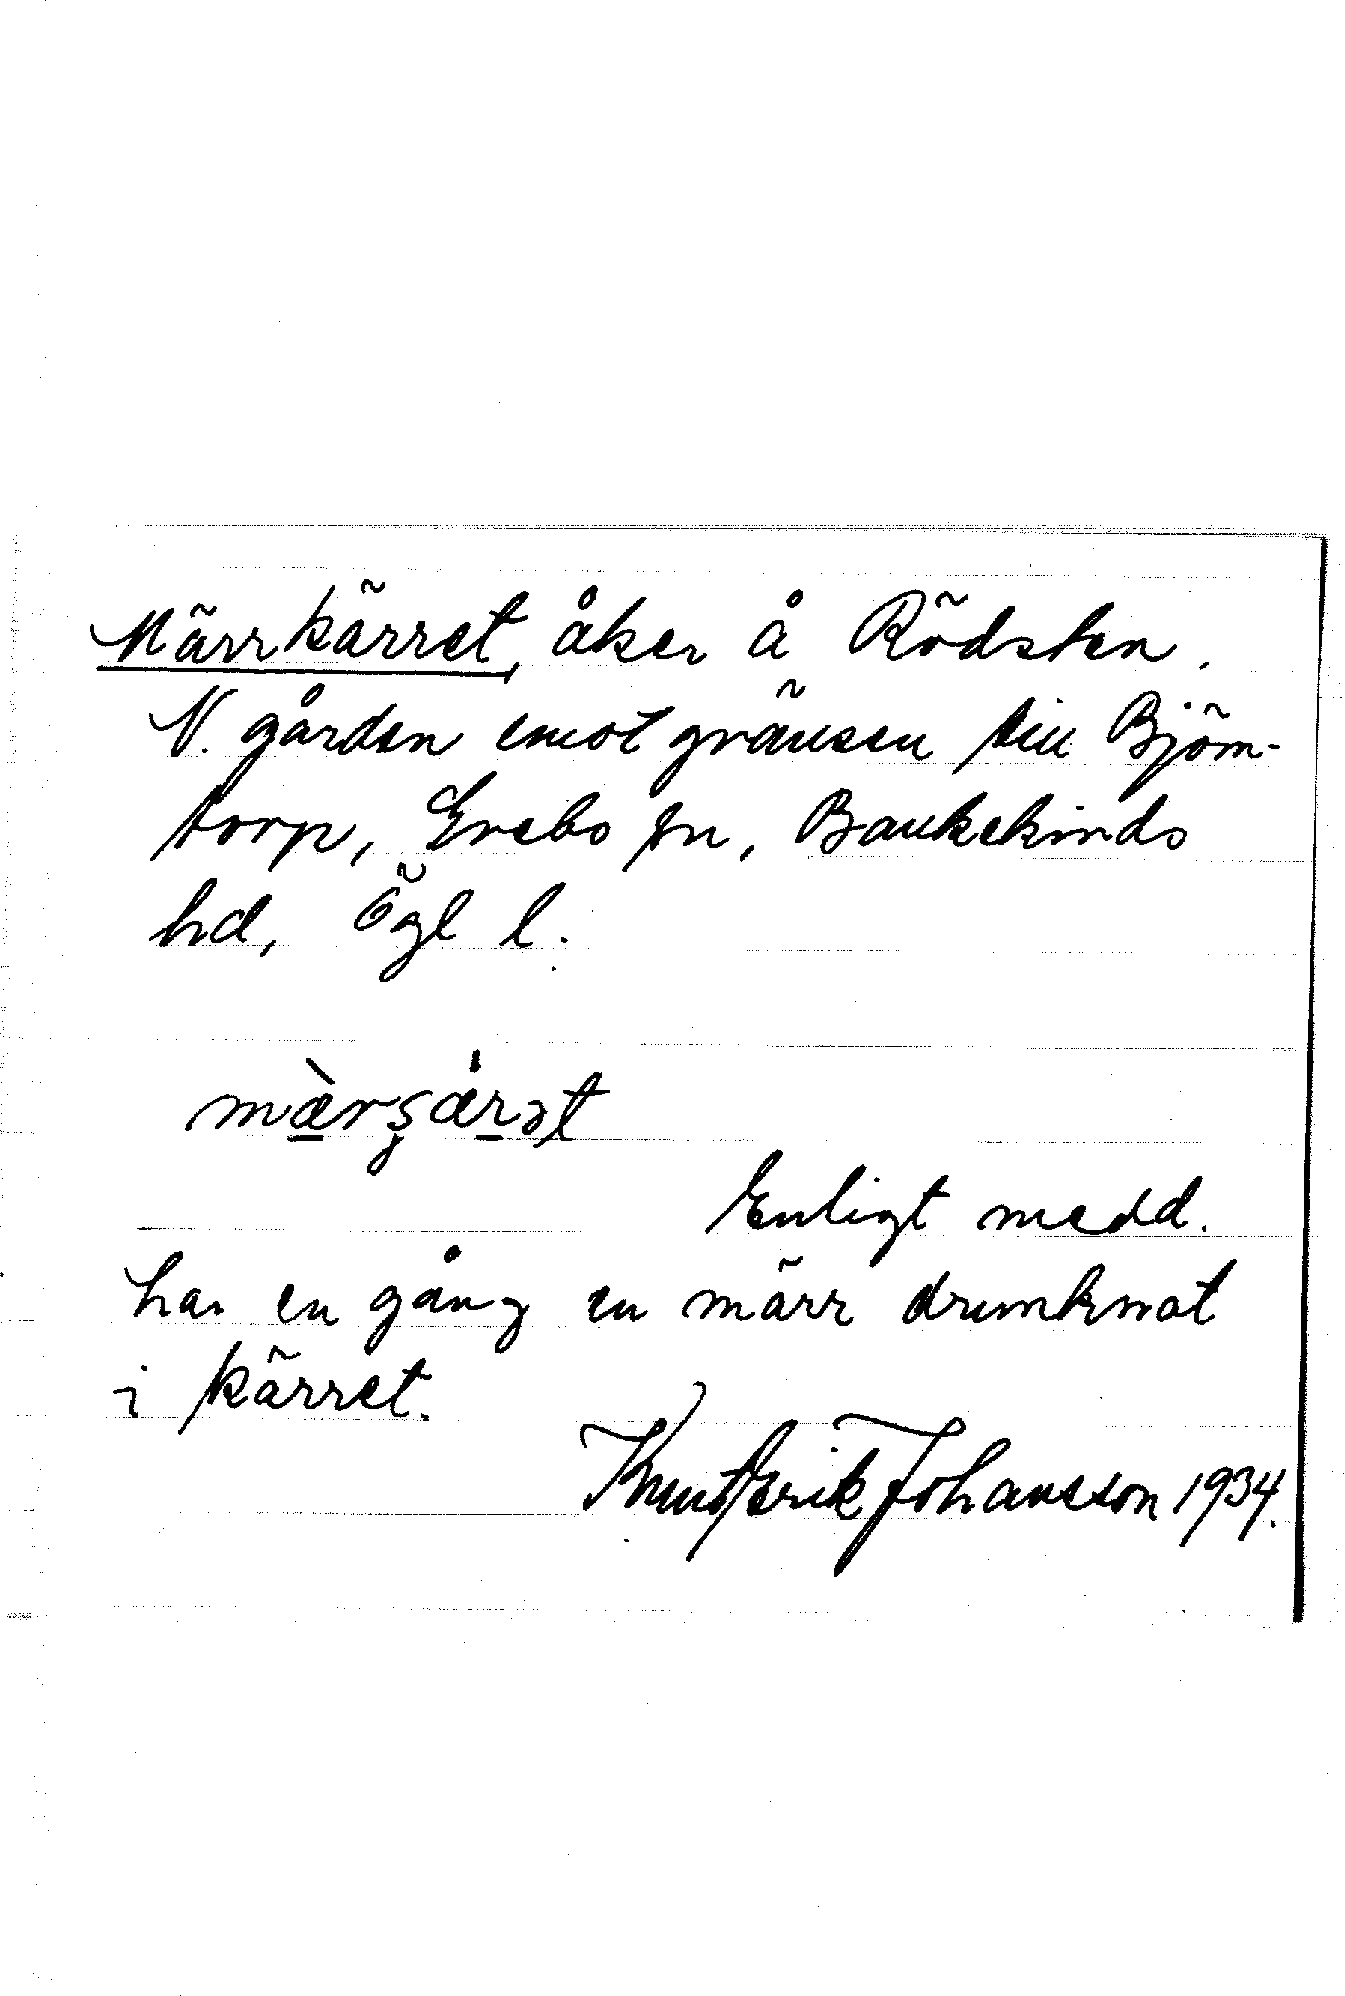 Märrkärret, åker å Rödsten.
N. gården emot gränsen till Björn-
torp, Grebo sn, Bankekinds
hd, Ögl l.
mærşærət
Enligt medd.
har en gång en märr drunknat
i kärret.
Knut Erik Johansson 1934.